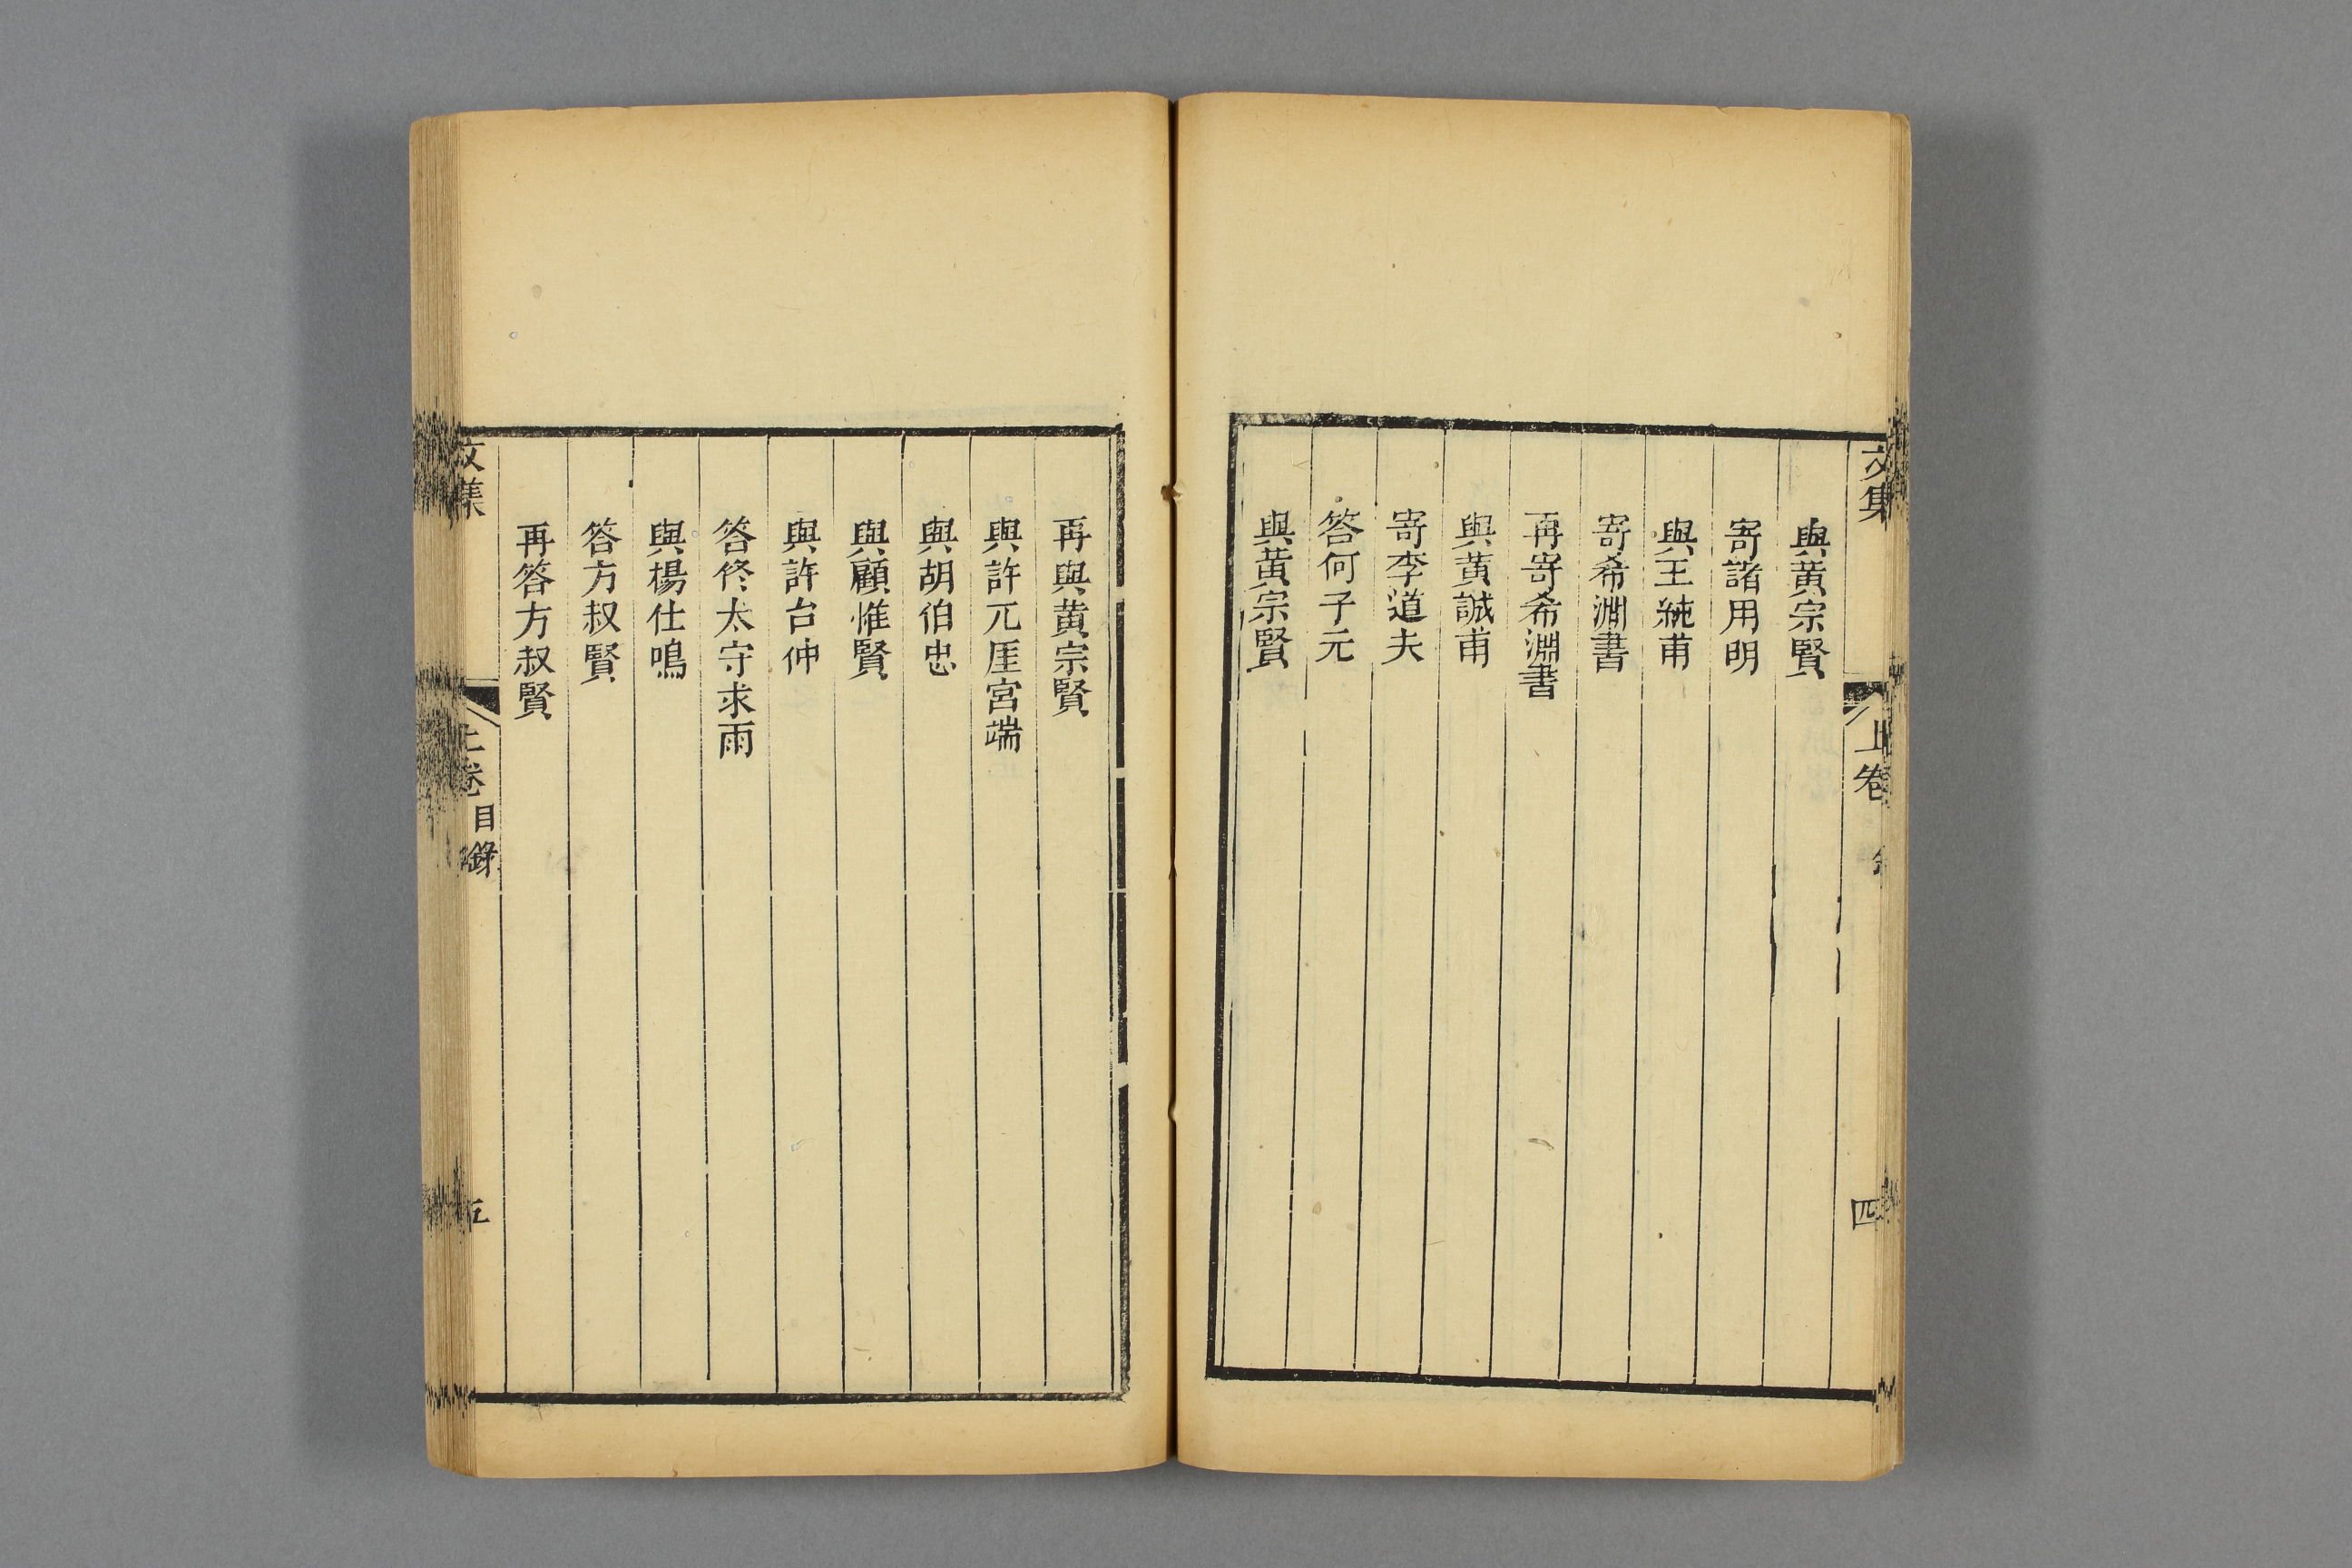 文集
上卷
四
與黃宗賢
寄諸用明
與王純甫
寄希淵書
再寄希淵書
與黃誠甫
寄李道夫
答何子元
與黃宗賢
再與黃宗賢
與許兀厓宮端
與胡伯忠
與顧惟賢
與許台仲
答佟太守求雨
與楊仕鳴
答方叔賢
再答方叔賢
文集
上卷
目錄
五